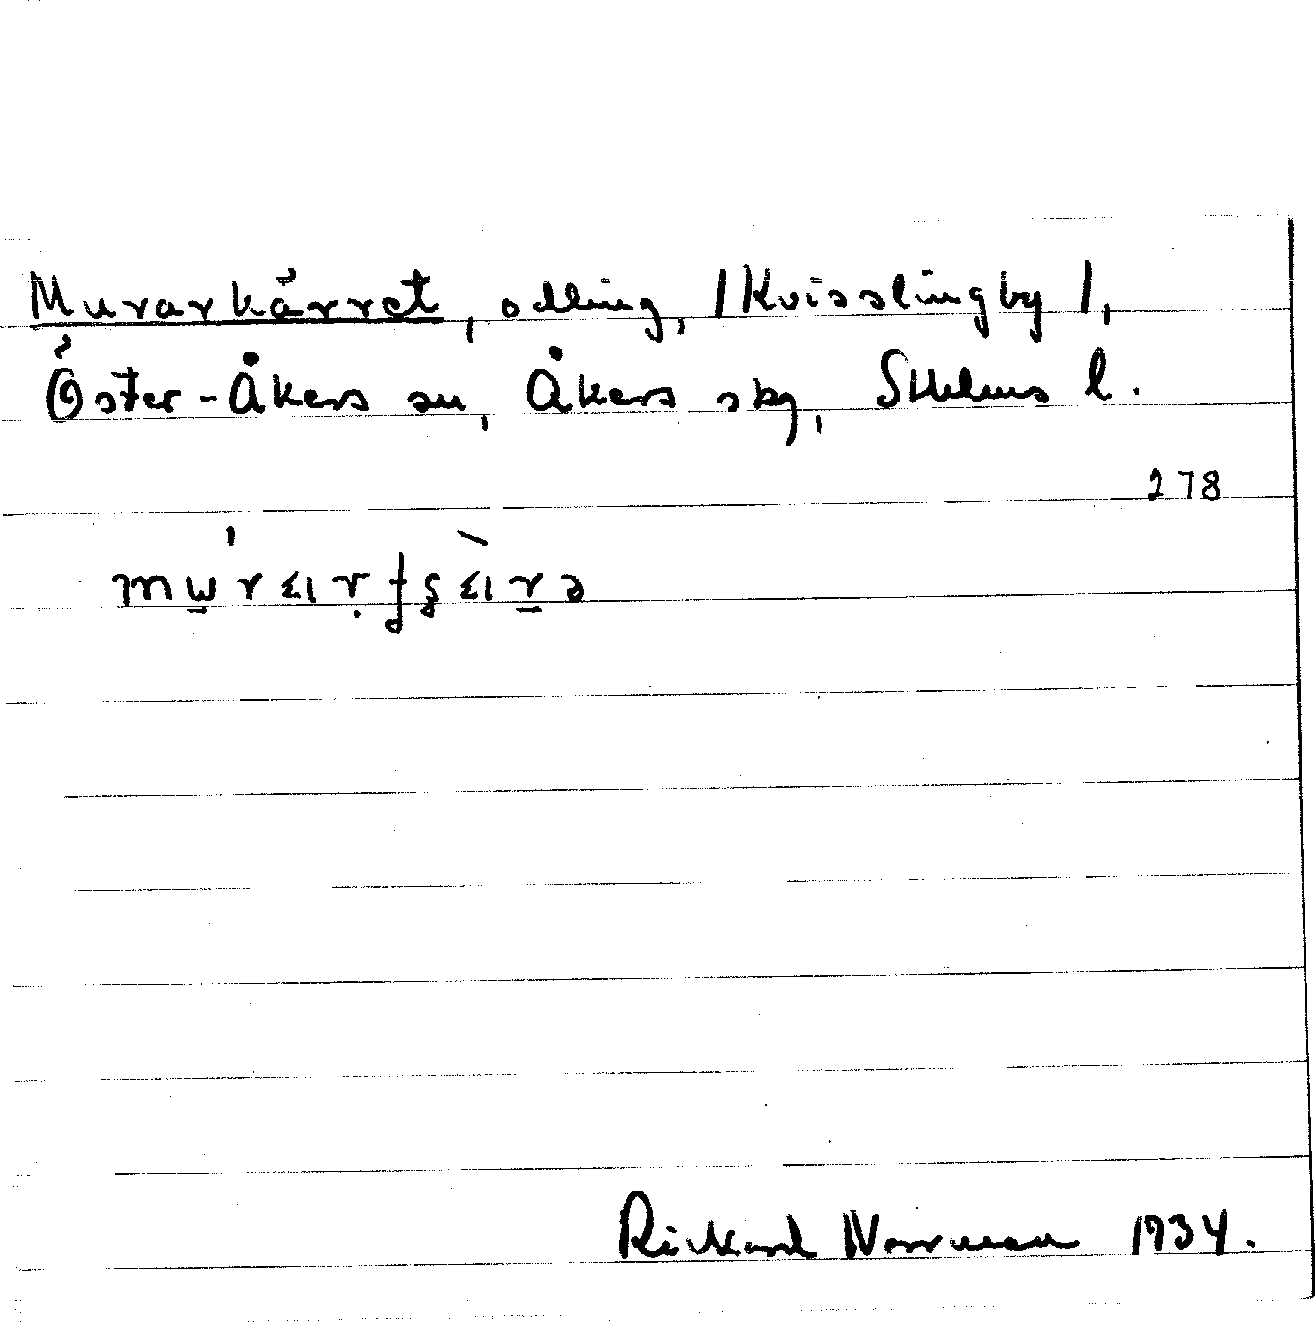 Murarkärret, odling, /Kvisslingby/,
Öster-Åkers sn, Åkers skg, Sthlms l.
278
Rickard Norrman 1934.